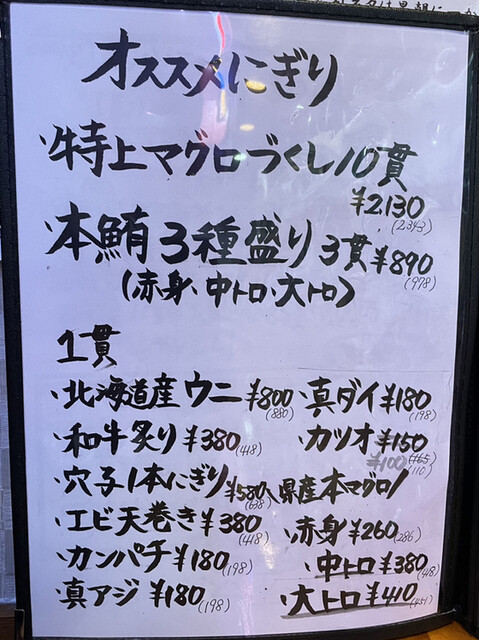 オススメにぎり
・特上マグロづくし10貫
¥2,130
(2,343)
本鮪3種盛り3貫¥890
(978)
(赤身・中トロ・大トロ)
1貫
・北海道産ウニ¥800
(880)
・和牛炙り¥380
(418)
・穴子1本にぎり¥580
(638)
・エビ天巻き¥380
(418)
・カンパチ¥180
(198)
・真アジ¥180
(198)
・真ダイ¥180
(198)
・カツオ¥150
(165)
¥100
(110)
県産本マグロ
・赤身¥260
(286)
・中トロ¥380
(418)
・大トロ¥410
(451)